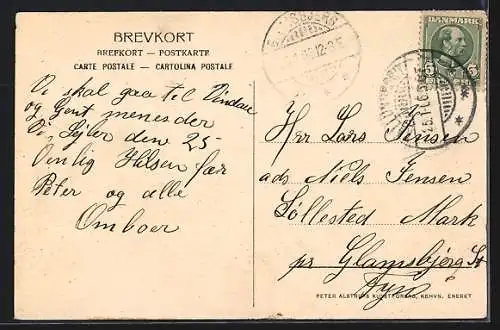 BREVKORT
BREFKORT — POSTKARTE
CARTE POSTALE — CARTOLINA POSTALE
Vi skal gaa til
og Gent
Vi Sejler den 25
Omlig Hilsen fra
Peter og alle
Omboer
DANMARK
Hrr Lars Jensen
ads Niels Jensen
Søllested Mark
pr Glamsbjerg St
Fyn
PETER ALSTRUPS KUNSTFORLAG, KBHVN. ENERET